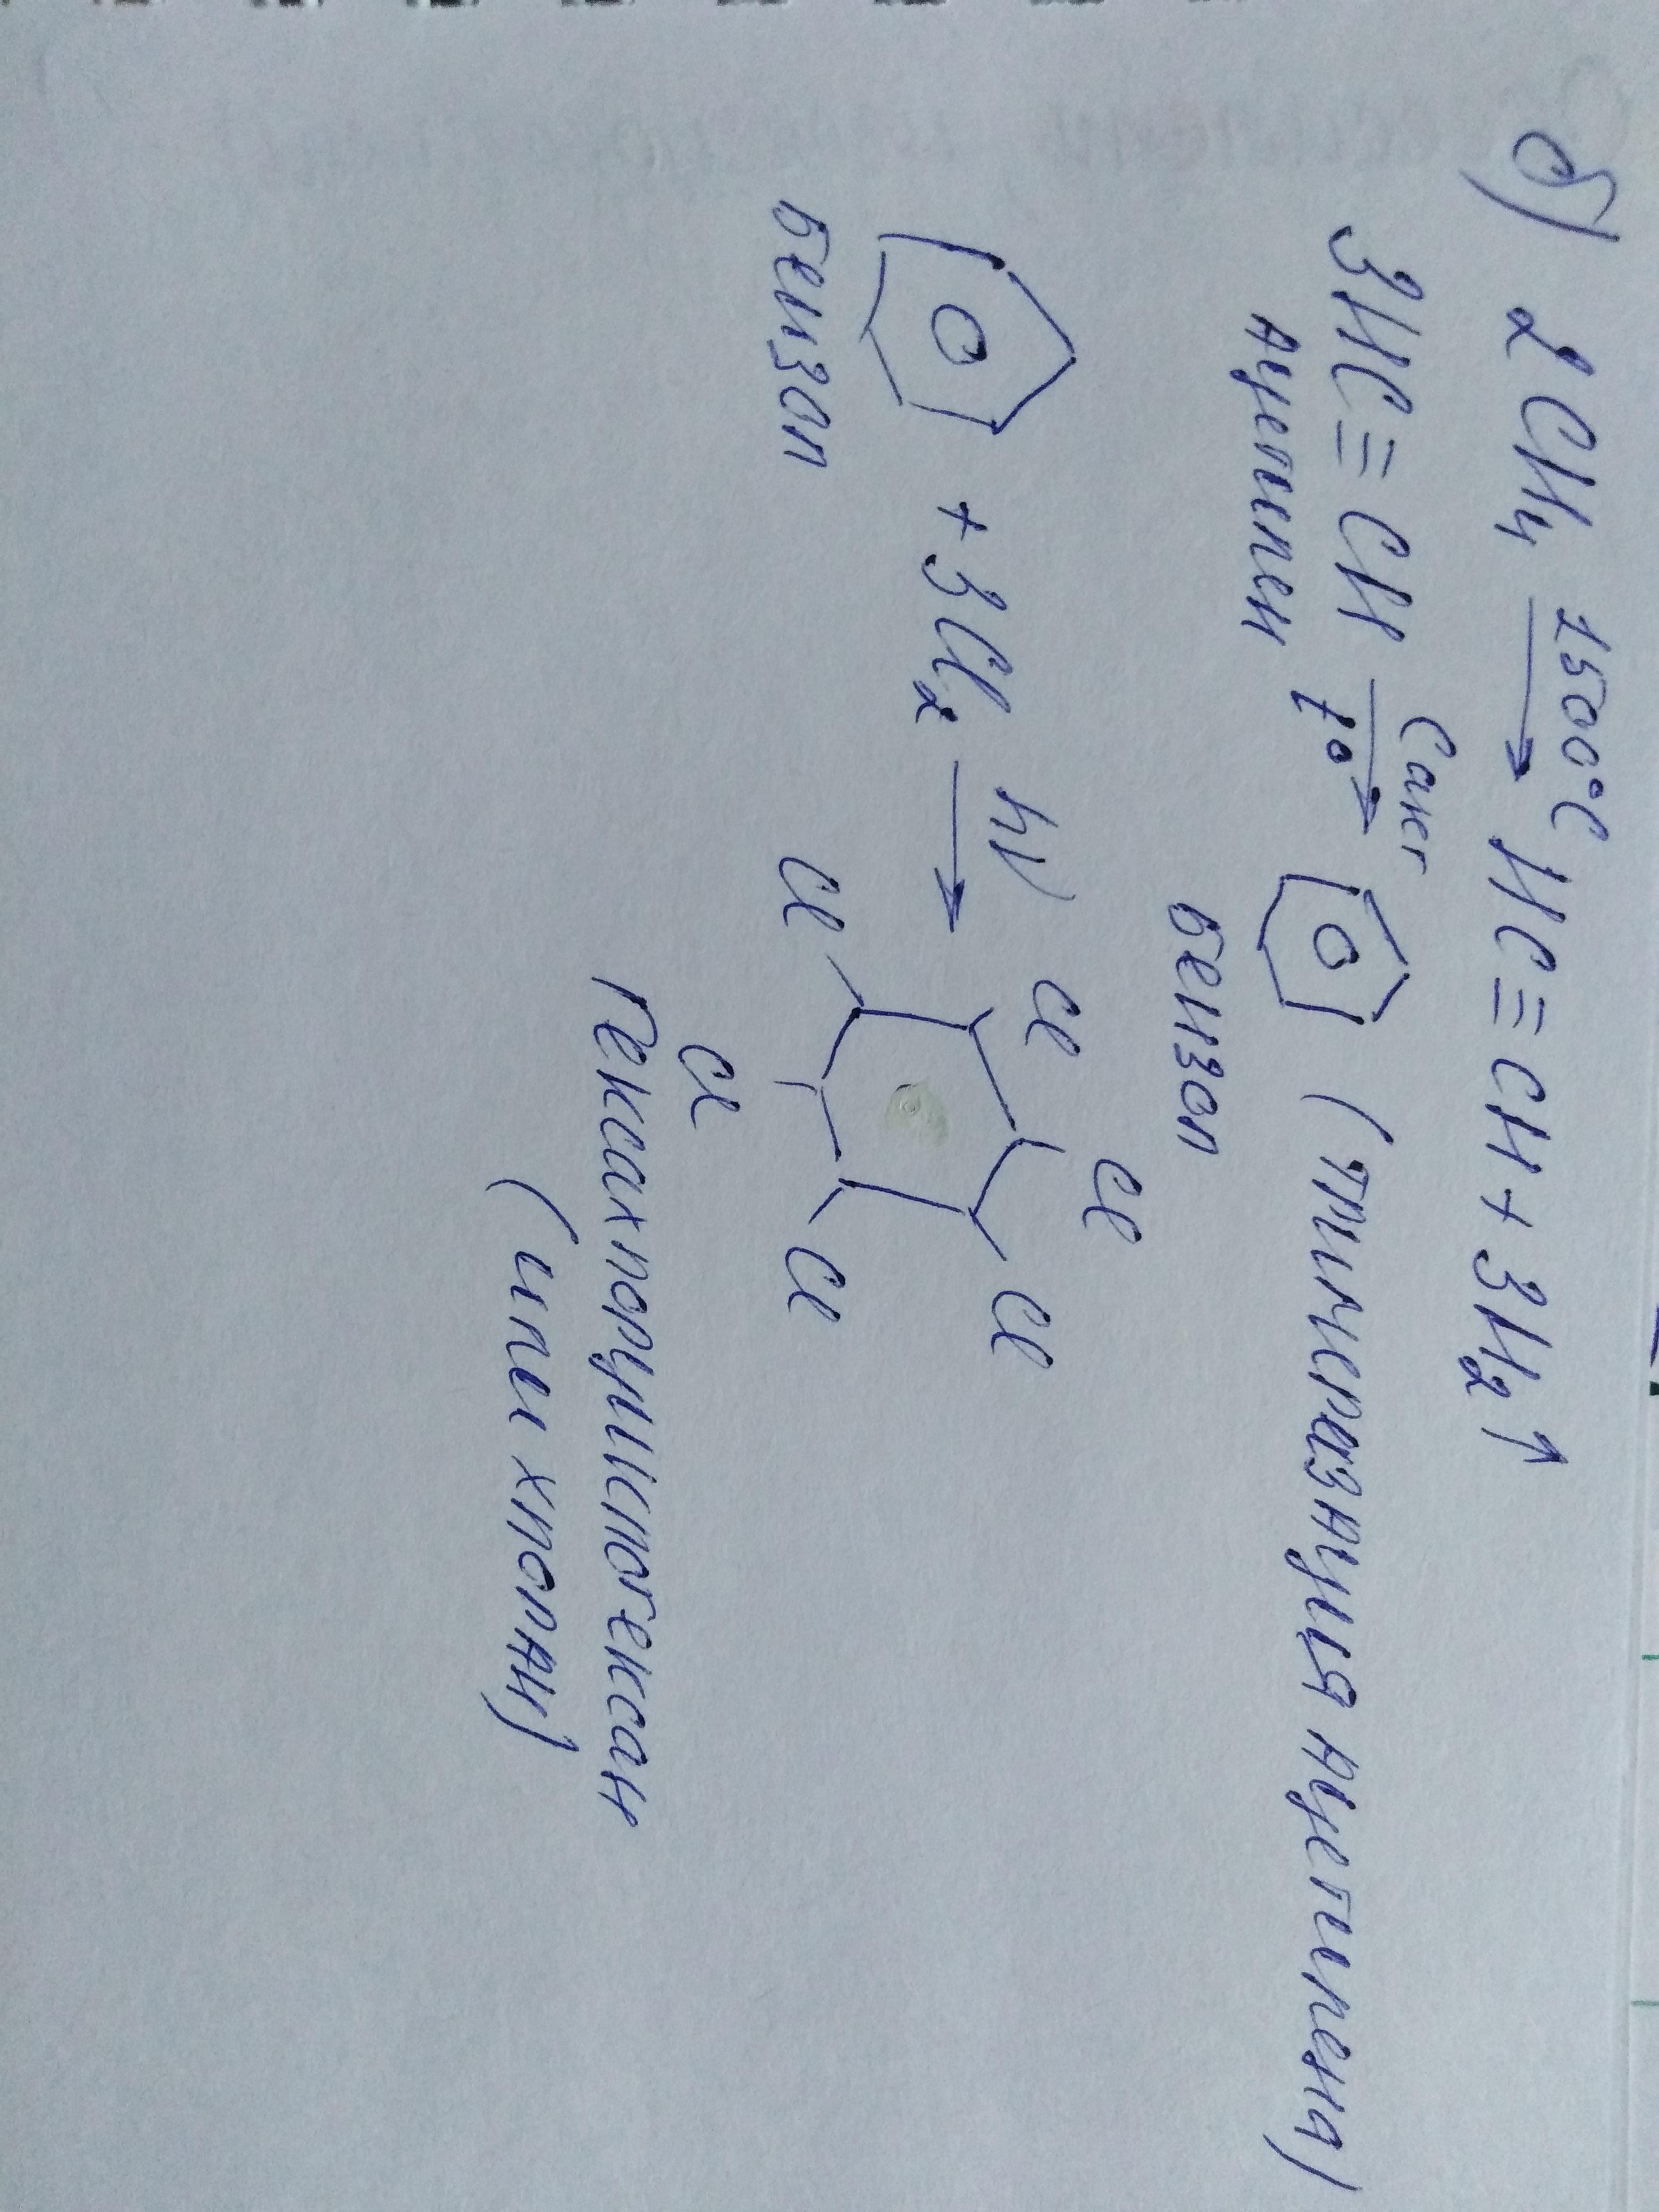 б) 2CH₄ 1500°C → HC≡CH + 3H₂↑
3HC≡CH Cакт → t° (тримеризация ацетилена)
ацетилен бензол
+ 3Cl₂ hν →
Cl Cl Cl
Cl Cl
Cl
бензол
Гексахлорциклогексан
(или хлоран)